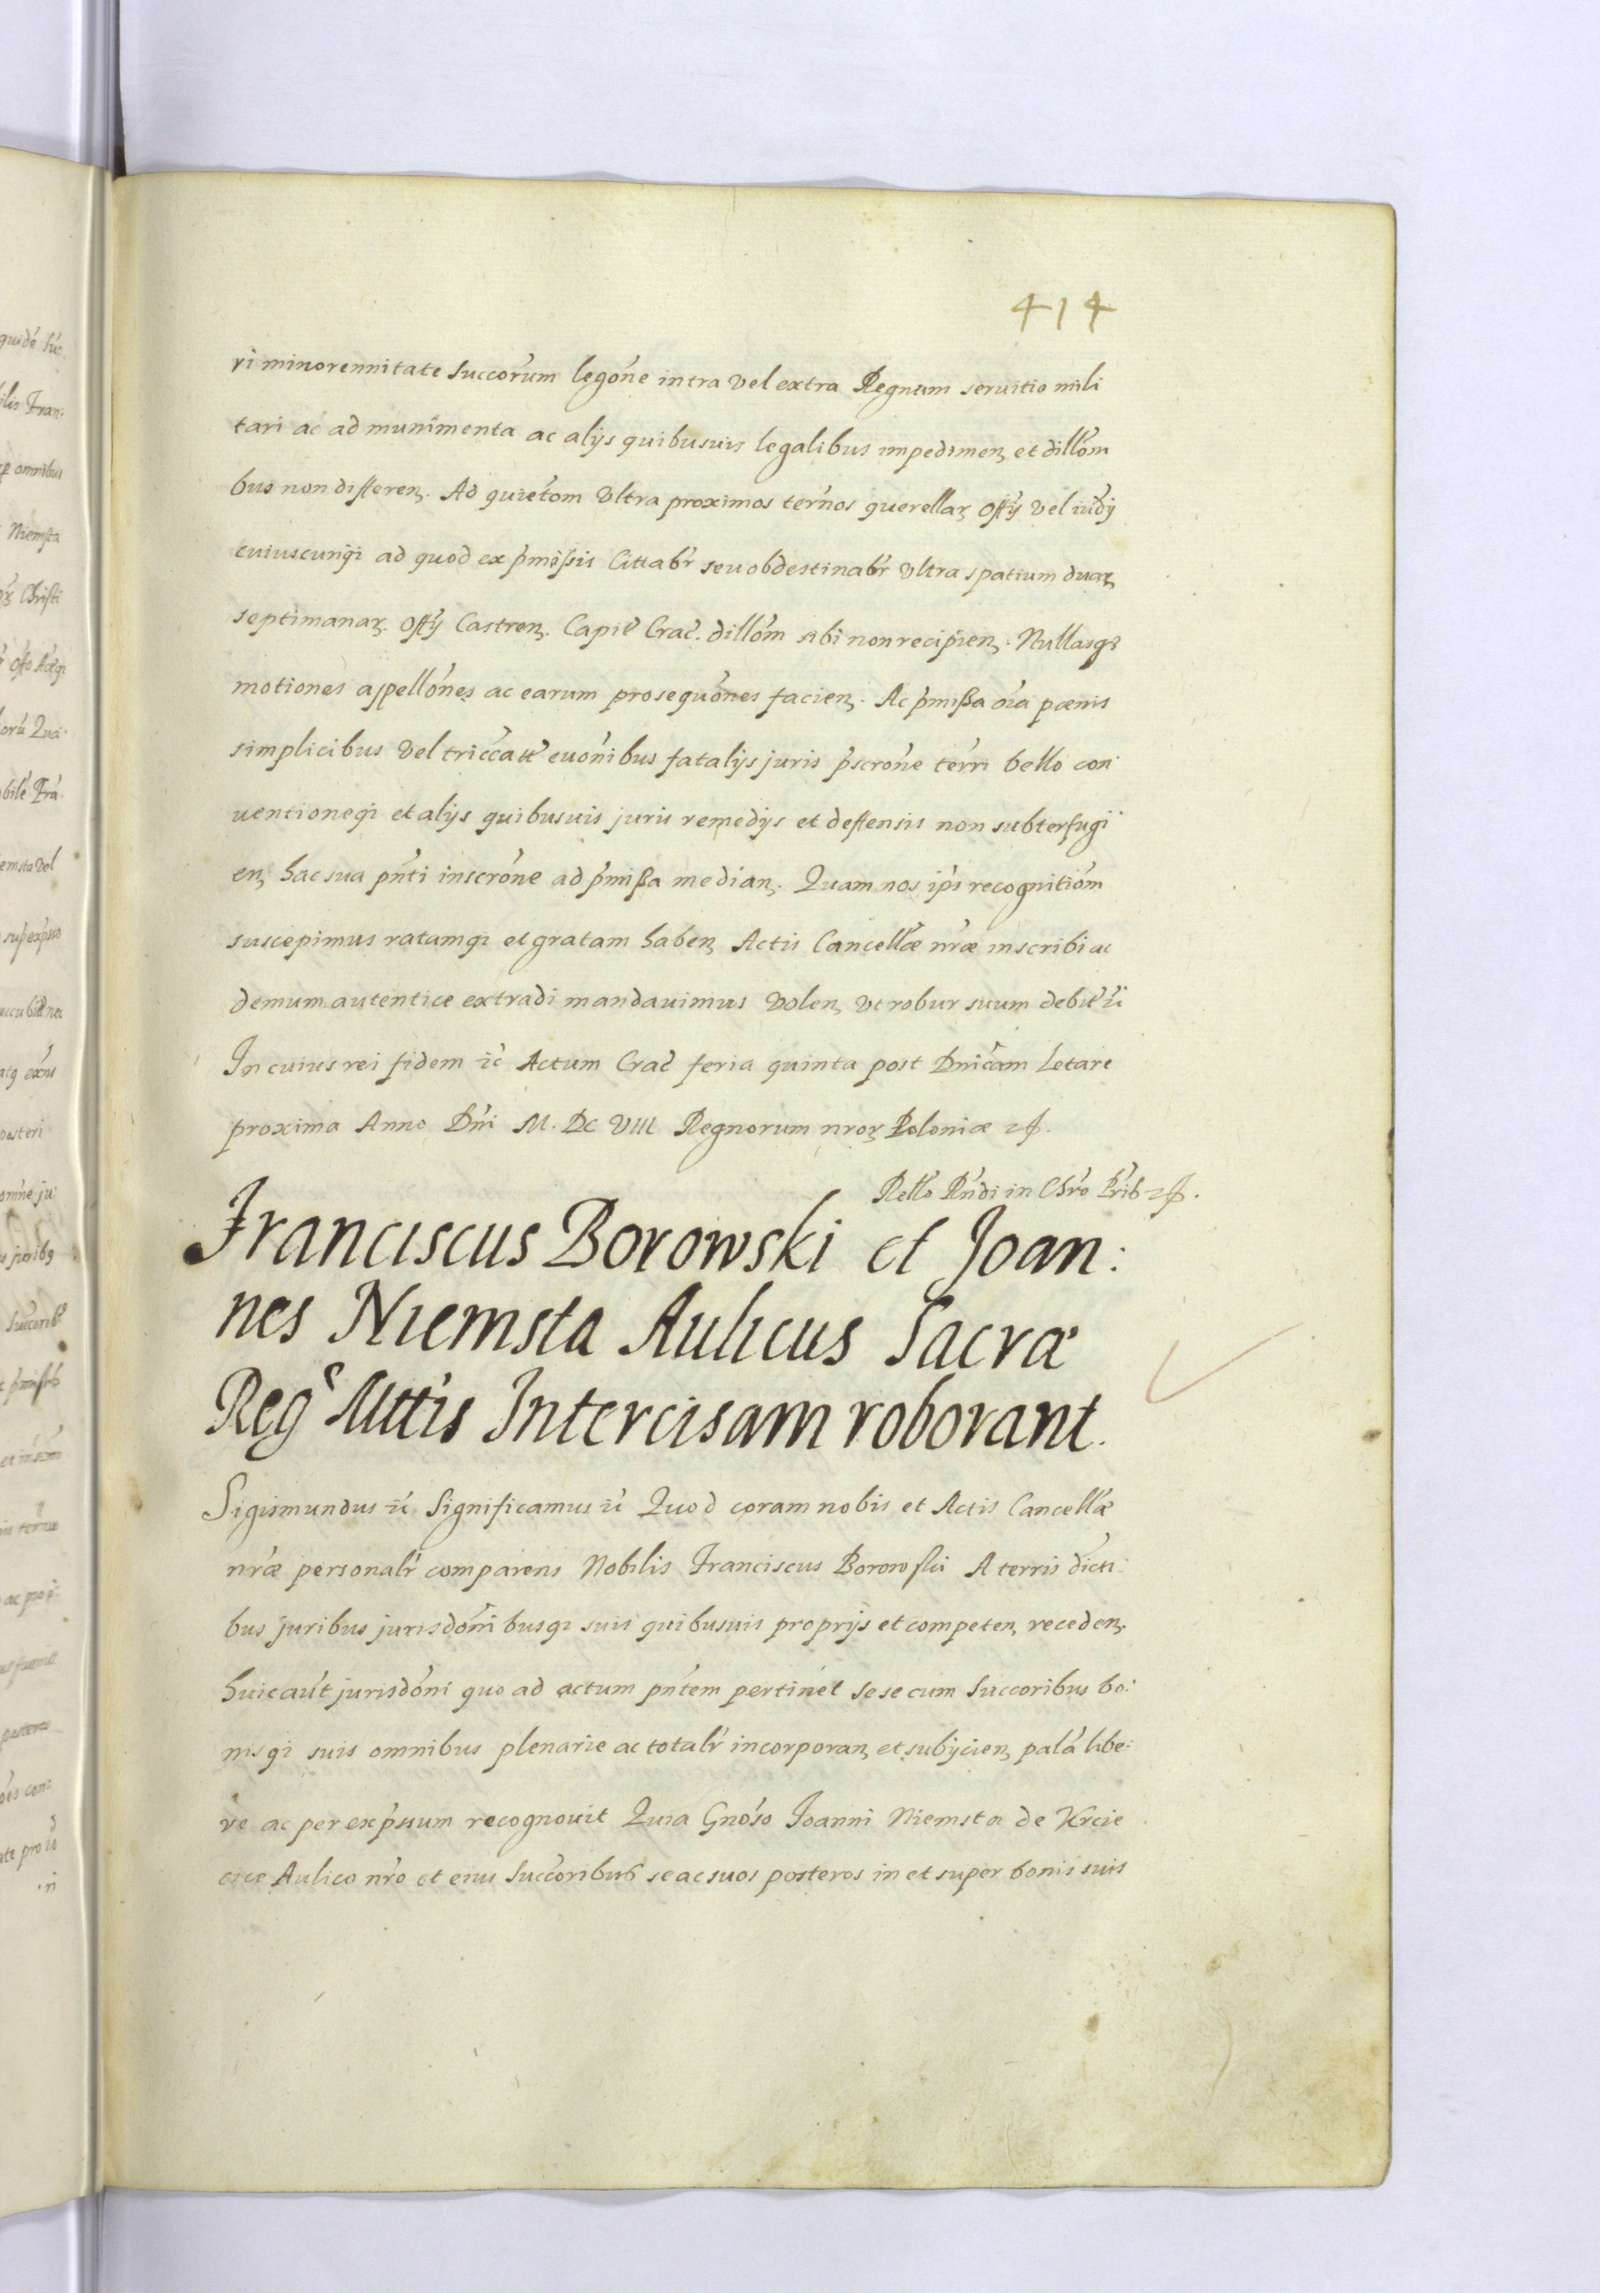 414
ri minorennitate Succorum legone intra vel extra Regnum seruitio mili
tari ac ad munimenta ac alijs quibusuis legalibus impedimen et dillom
bus non differen. Ad quietom Vltra proximos ternos querellar offij vel iudij
cuiuscunqz ad quod ex pmissis Cittabr seu obdestinabr Vltra spatium duar
septimanar. offij Castren. Capit Crac. dillom sibi non recipien. Nullasqz
motiones appellones ac earum prosequones facien. Ac pmißa oia pœnis
simplicibus vel triccatt euonibus fatalijs juris pscrone terri bello con
uentioneqz et alijs quibusuis juris remedijs et deffensis non subterfugi
en hac sua pnti inscrone ad pmißa median. Quam nos ips recognitiom
suscepimus ratamqz et gratam haben Actis Cancellæ nræ inscribi ac
demum autentice extradi mandauimus volen vt robur suum debit
In cuius rei fidem zc Actum Crac feria quinta post Dnicam Letare
proxima Anno Dni M. DC VIII Regnorum nror Poloniæ
Rello Rndi in Chro Prib
Franciscus Borowski et Joan:
nes Niemsta Aulicus Sacræ
Reg Mttis Intercisam roborant.
Sigismundus zc Significamus zc Quod coram nobis et Actis Cancellæ
nræ personalr comparens Nobilis Franciscus Borowski A terris dicti:
bus juribus jurisdonibusqz suis quibusuis proprijs et competen receden.
huic aut jurisdoni quo ad actum pntem pertinet sese cum Succoribus bo:
nisqz suis omnibus plenarie ac totalr incorporan et subijcien palá libe:
re ac per expssum recognouit Quia Gnoso Joanni Niemsta de Krcie
cice Aulico nro et eius Succoribus se ac suos posteros in et super bonis suis